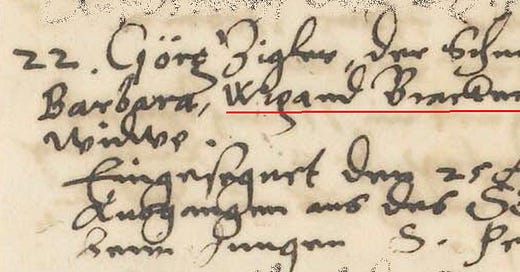 22. Görg Zigler, der Schn
Barbara, Wigand Bracken
Widwe.
Eingesegnet den 25
Außgangen aus des
beim Jungen S. Pe